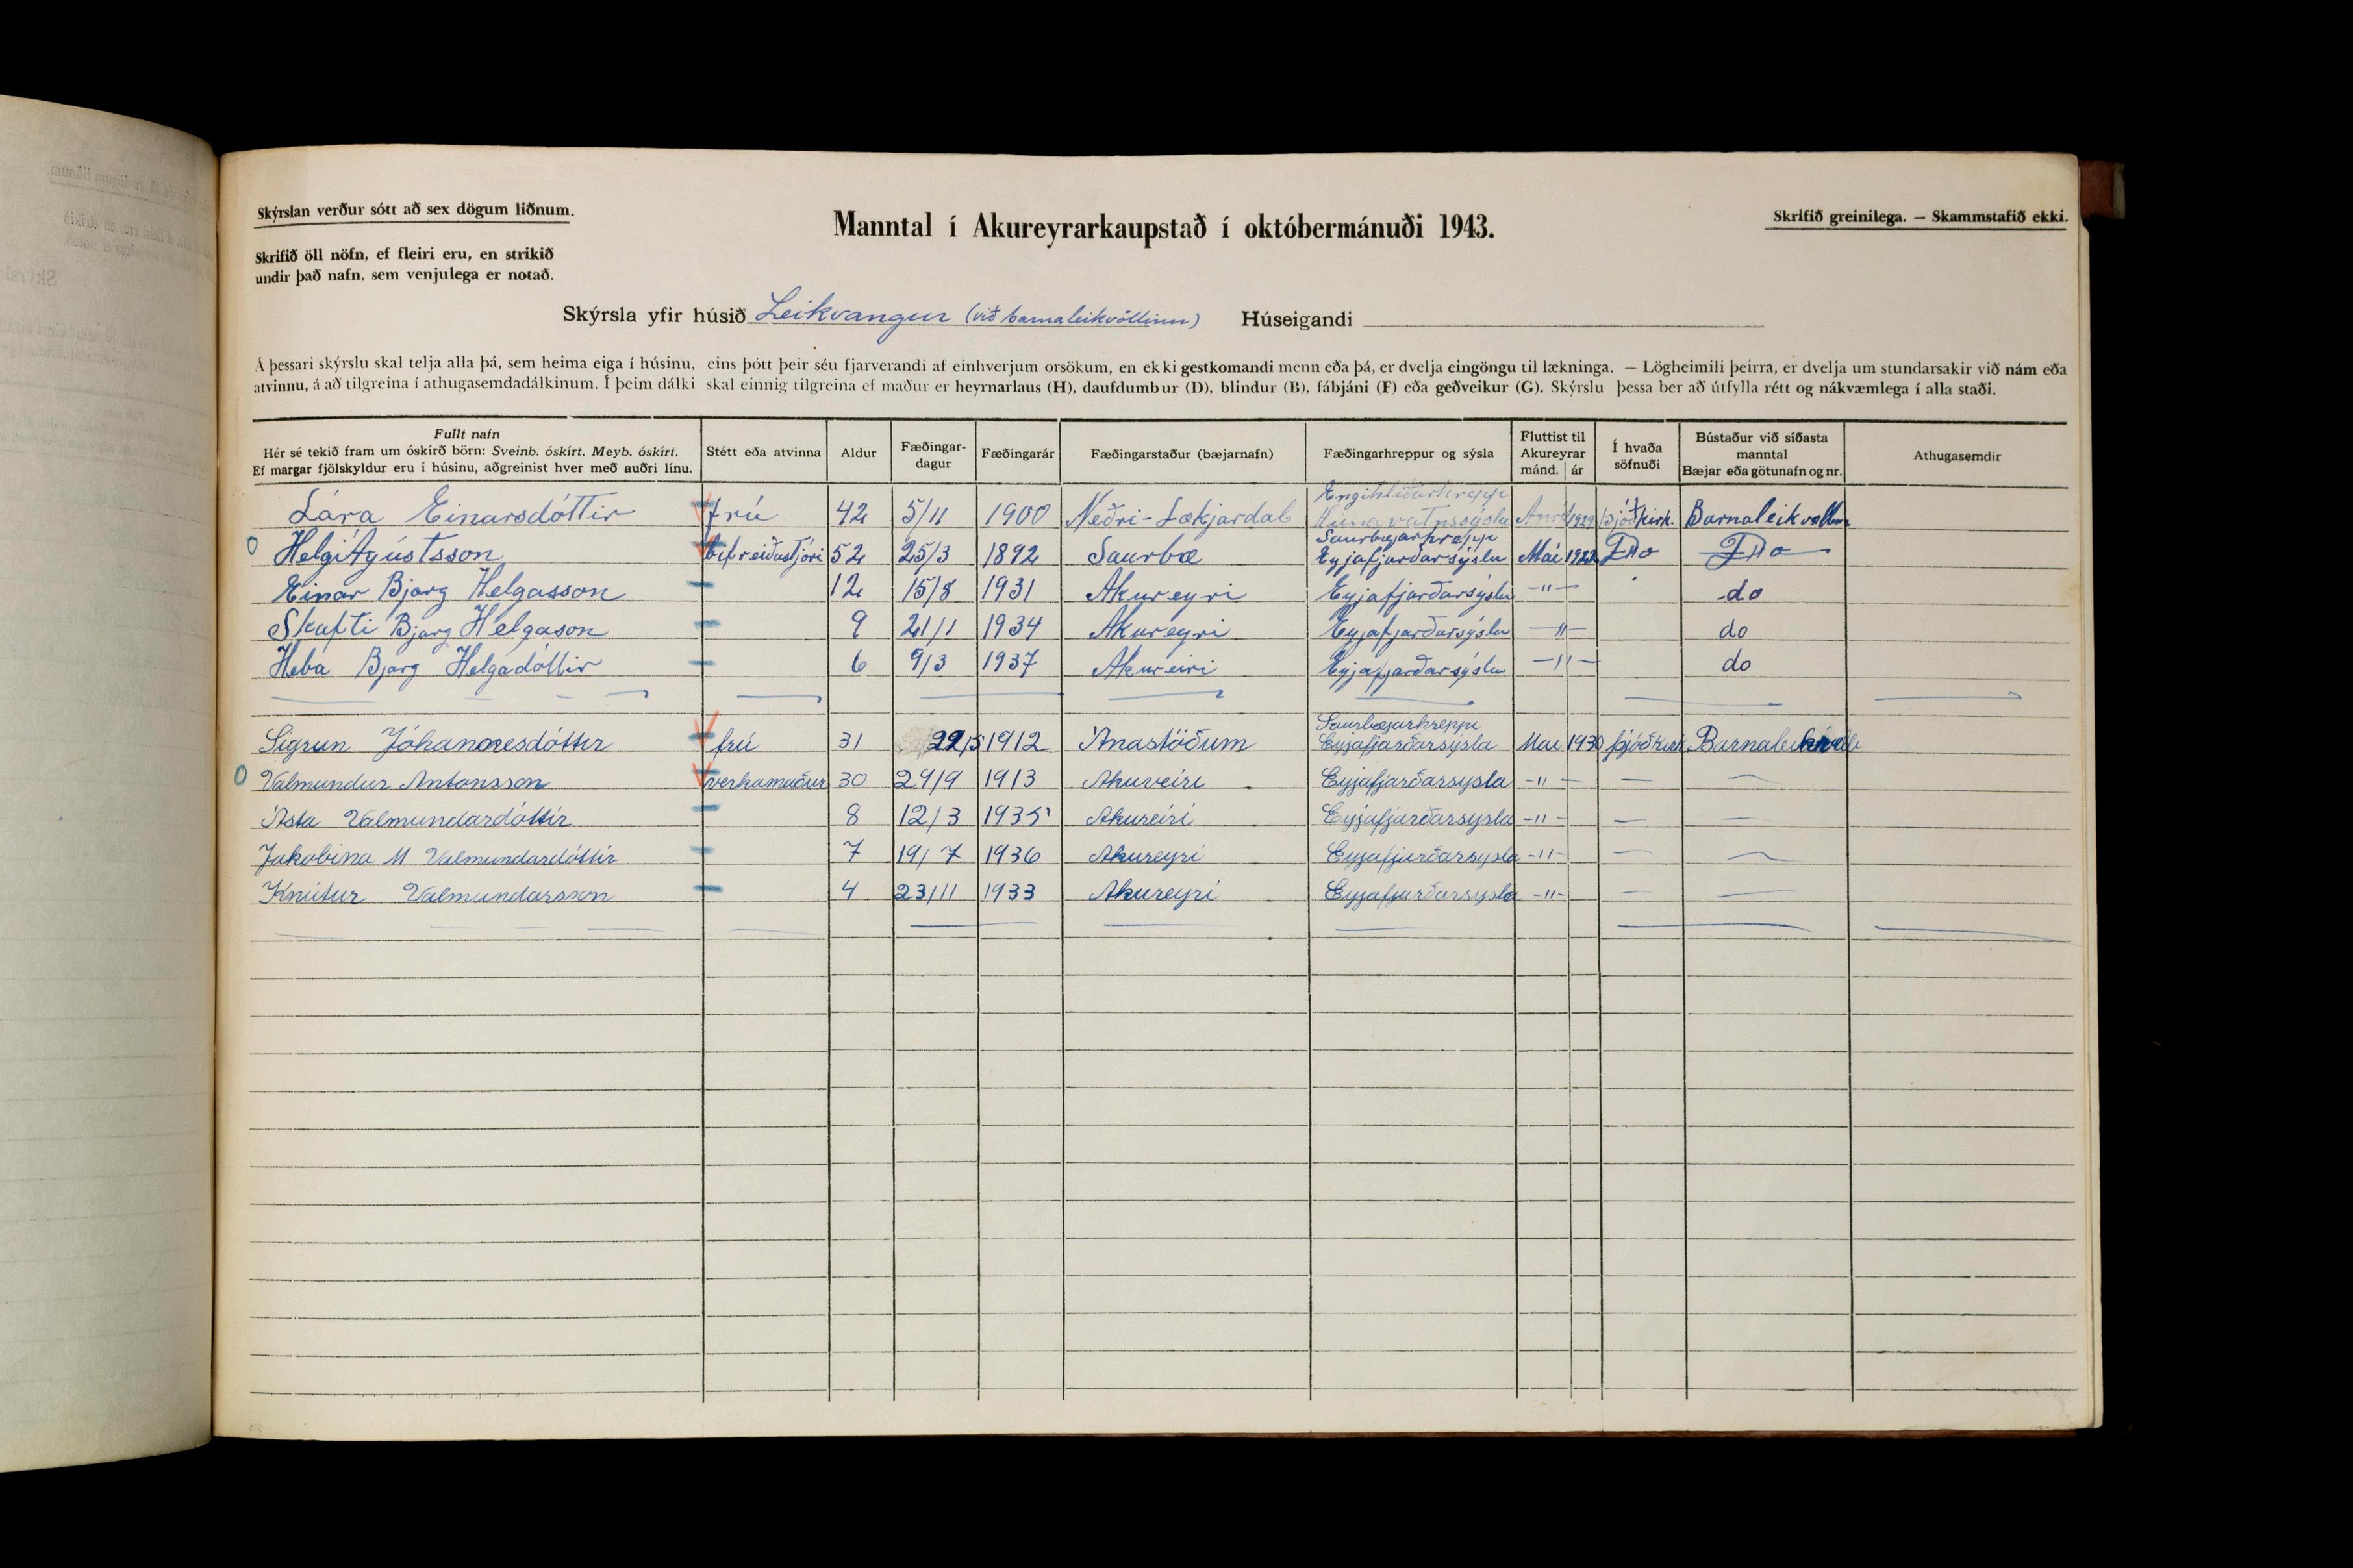 Skýrslan verður sótt að sex dögum liðnum.
Skrifið öll nöfn, ef fleiri eru, en strikið
undir það nafn, sem venjulega er notað.
Manntal í Akureyrarkaupstað í októbermánuði 1943.
Skrifið greinilega. — Skammstafið ekki.
Skýrsla yfir húsið Leikvangur (við barnaleikvöllinn) Húseigandi
Á þessari skýrslu skal telja alla þá, sem heima eiga í húsinu, eins þótt þeir séu fjarverandi af einhverjum orsökum, en ekki gestkomandi menn eða þá, er dvelja eingöngu til lækninga. — Lögheimili þeirra, er dvelja um stundarsakir við nám eða
atvinnu, á að tilgreina í athugasemdadálkinum. Í þeim dálki skal einnig tilgreina ef maður er heyrnarlaus (H), daufdumbur (D), blindur (B), fábjáni (F) eða geðveikur (G). Skýrslu þessa ber að útfylla rétt og nákvæmlega í alla staði.
Fullt nafn
Hér sé tekið fram um óskírð börn: Sveinb. óskírt. Meyb. óskírt.
Ef margar fjölskyldur eru í húsinu, aðgreinist hver með auðri línu.
Stétt eða atvinna
Aldur
Fæðingar-
dagur
Fæðingarár
Fæðingarstaður (bæjarnafn)
Fæðingarhreppur og sýsla
Fluttist til
Akureyrar
mánd. ár
Í hvaða
söfnuði
Bústaður við síðasta
manntal
Bæjar eða götunafn og nr.
Athugasemdir
Engihlíðarhrepp
Lára Einarsdóttir frú 42 5/11 1900 Neðri-Lækjardal Húnavatnssýslu 1929 þjóðkirk. Barnaleikvöllin
Saurbæjarhrepp
Helgi Ágústsson bifreiðastjóri 52 25/3 1892 Saurbæ Eyjafjarðarsýslu Maí Do Do
Einar Bjarg Helgasson 12 15/8 1931 Akureyri Eyjafjarðarsýslu -"- do
Skafti Bjarg Helgason 9 21/1 1934 Akureyri Eyjafjarðarsýslu -"- do
Heba Bjarg Helgadóttir 6 9/3 1937 Akureiri Eyjafjarðarsýslu -"- do
Saurbæjarhreppi
Sigrun Jóhannesdóttir frú 31 22/5 1912 Ánastöðum Eyjafjarðarsýsla Mai 1930 þjóðkirk
Valmundur Antonsson verkamaður 30 29/9 1913 Akureiri Eyjafjarðarsysla -"- — —
Ásta Valmundardóttir 8 12/3 1935 Akureiri Eyjafjarðarsysla -"- — —
Jakobina M Valmundardóttir 7 19/7 1936 Akureyri Eyjafjarðarsysla -"- — —
Knútur Valmundarsson 4 23/11 1933 Akureyri Eyjafjarðarsysla -"- — —